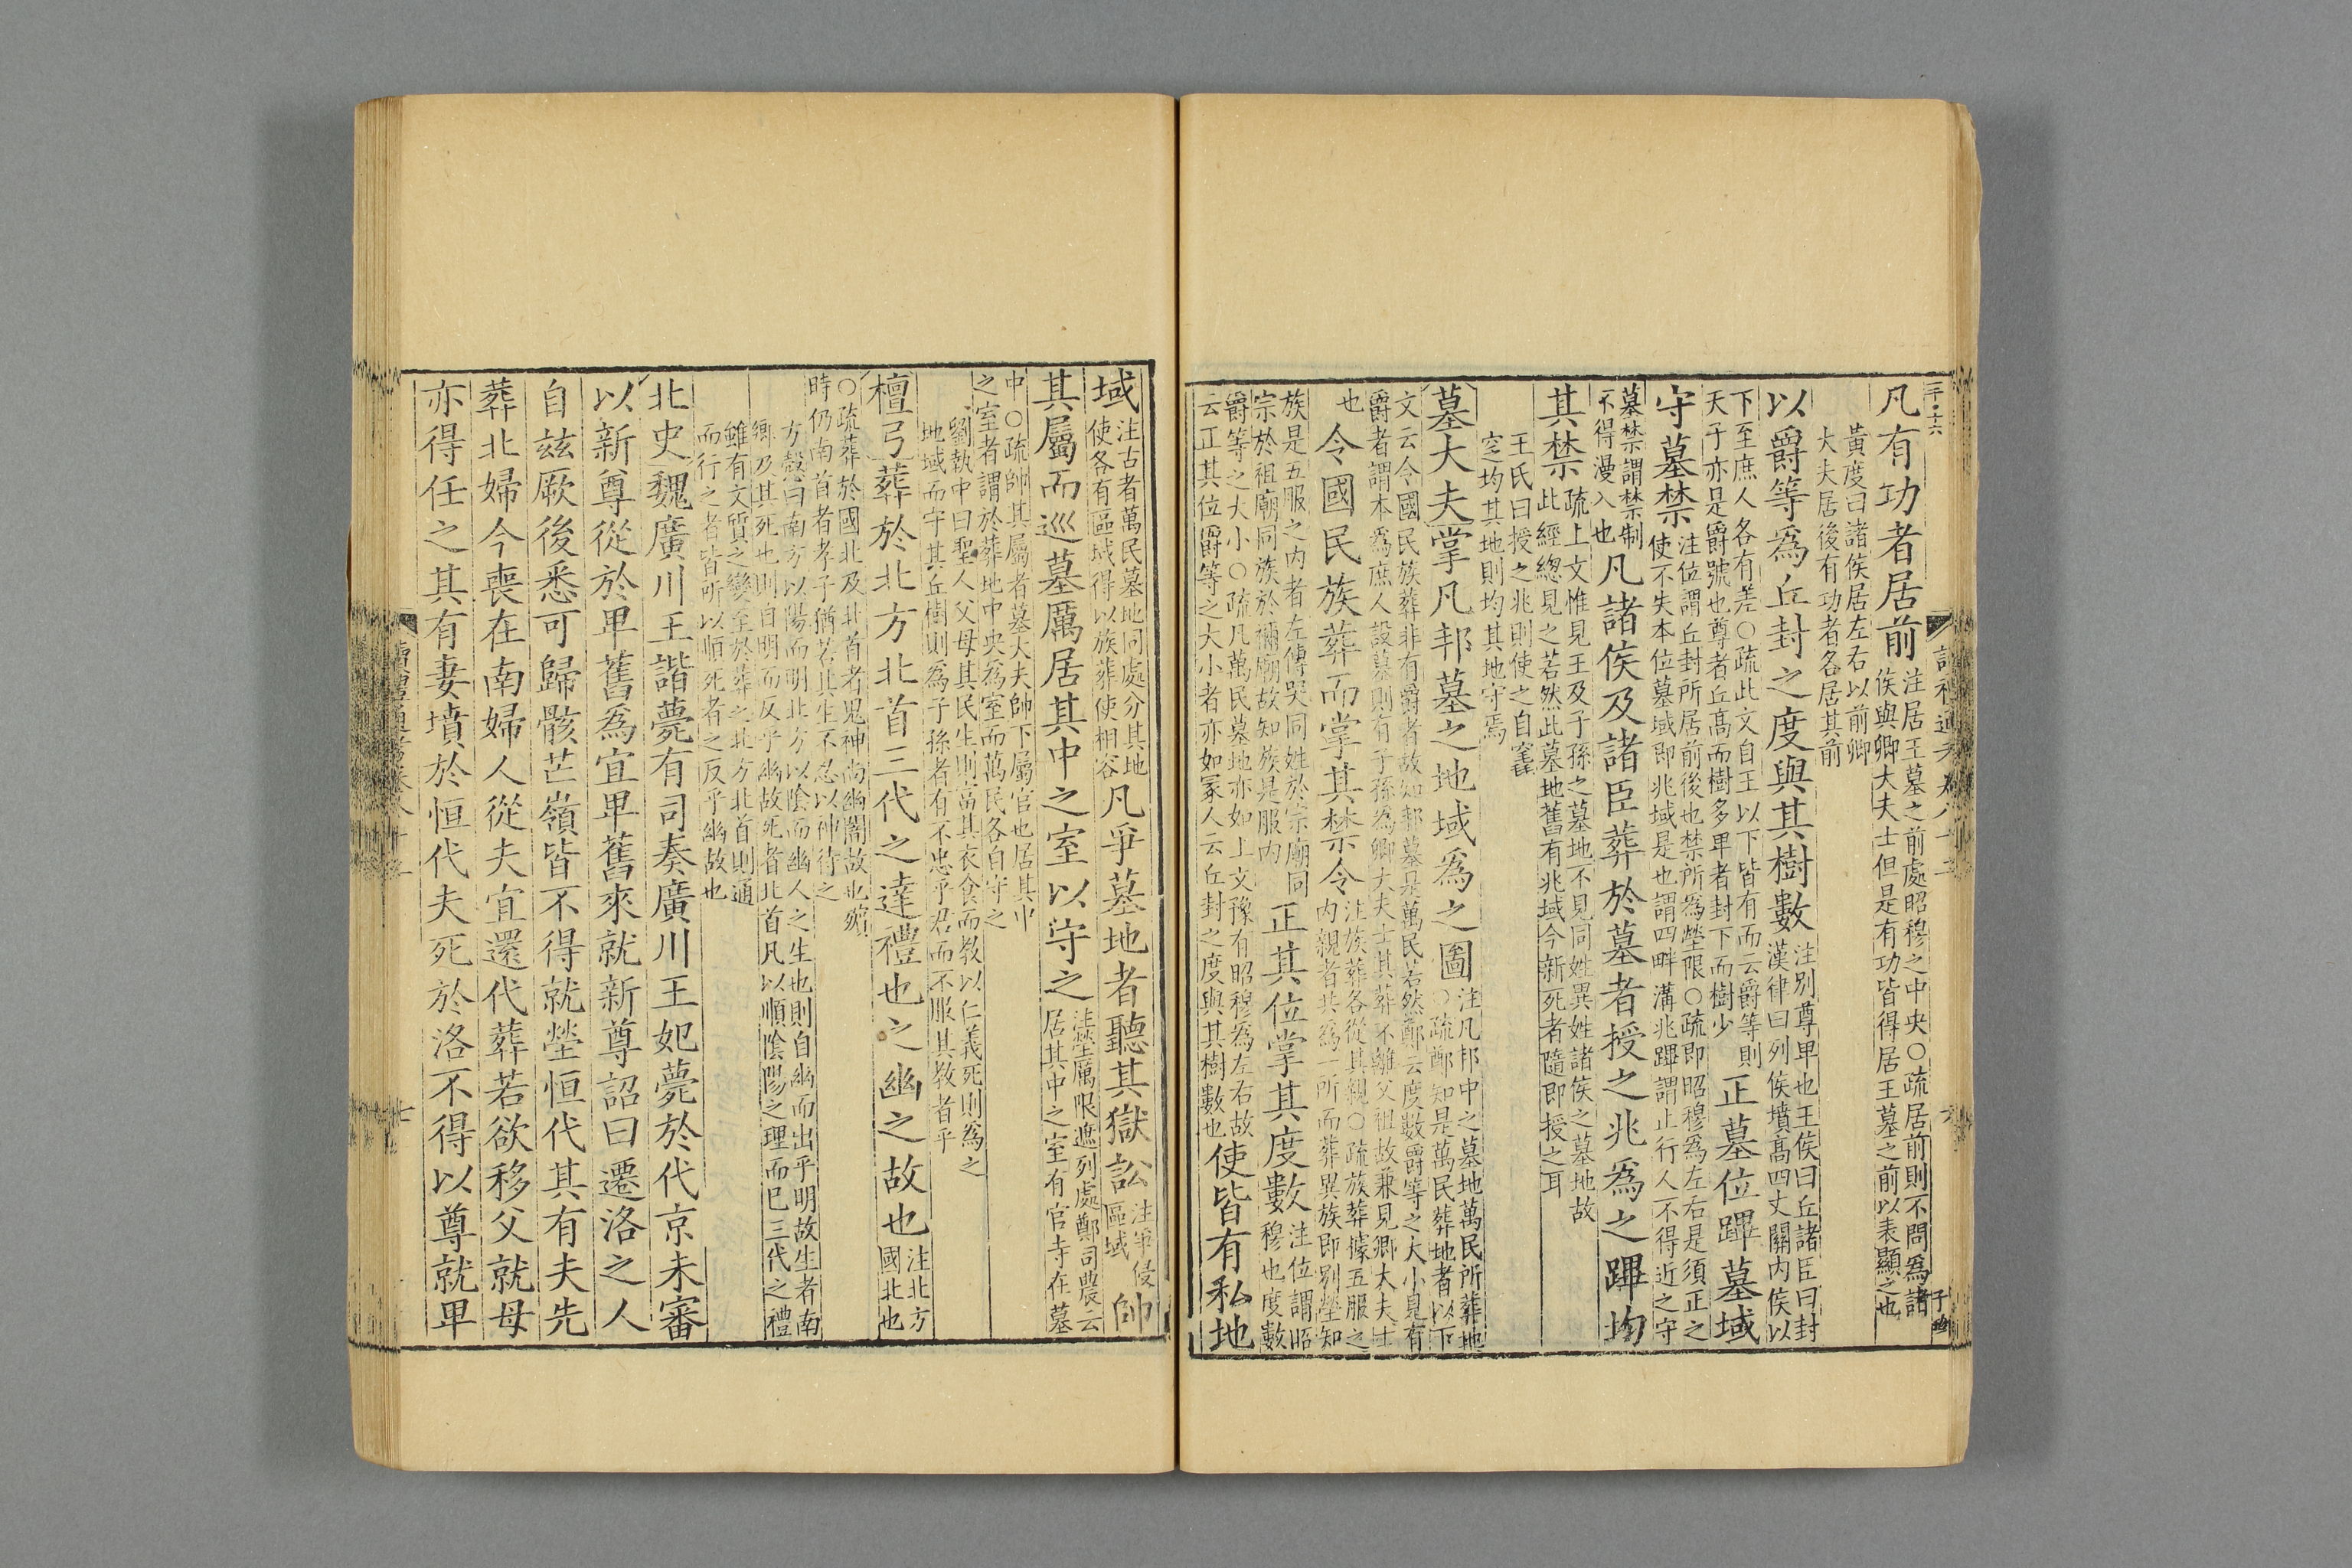 凡有功者居前 注居王墓之前處昭穆之中央○疏居前則不問爲諸
侯與卿大夫士但是有功皆得居王墓之前以表顯之也
黃度曰諸侯居左右以前卿
大夫居後有功者各居其前
以爵等爲丘封之度與其樹數 注别尊卑也王侯曰丘諸臣曰封
漢律曰列侯墳高四丈關内侯以
下至庶人各有差○疏此文自王以下皆有而云爵等則
天子亦是爵號也尊者丘高而樹多卑者封下而樹少 正墓位蹕墓域
守墓禁 注位謂丘封所居前後也禁所爲塋限○疏即昭穆爲左右是須正之
使不失本位墓域即兆域是也謂四畔溝兆蹕謂止行人不得近之守
墓禁謂禁制
不得漫入也 凡諸侯及諸臣葬於墓者授之兆爲之蹕均
其禁 疏上文惟見王及子孫之墓地不見同姓異姓諸侯之墓地故
此經總見之若然此墓地舊有兆域今新死者隨即授之耳
王氏曰授之兆則使之自窆
窆均其地則均其地守焉
墓大夫掌凡邦墓之地域爲之圖 注凡邦中之墓地萬民所葬地
○疏鄭知是萬民葬地者以下
文云令國民族葬非有爵者故知邦墓是萬民若然鄭云度數爵等之大小見有
爵者謂本爲庶人設墓則有子孫爲卿大夫士其葬不離父祖故兼見卿大夫士
也 令國民族葬而掌其禁令 注族葬各從其親○疏族葬據五服之
内親者共爲一所而葬異族即别塋知
族是五服之内者左傳哭同姓於宗廟同
宗於祖廟同族於禰廟故知族是服内 正其位掌其度數 注位謂昭
穆也度數
爵等之大小○疏凡萬民墓地亦如上文豫有昭穆爲左右故
云正其位爵等之大小者亦如冢人云丘封之度與其樹數也 使皆有私地
域 注古者萬民墓地同處分其地
使各有區域得以族葬使相容 凡爭墓地者聽其獄訟 注爭侵
區域 帥
其屬而巡墓厲居其中之室以守之 注塋厲限遮列處鄭司農云
居其中之室有官寺在墓
中○疏帥其屬者墓大夫帥下屬官也居其中
之室者謂於葬地中央爲室而萬民各自守之
劉執中曰聖人父母其民生則富其衣食而教以仁義死則爲之
地域而守其丘樹則爲子孫者有不忠乎君而不服其教者乎
檀弓葬於北方北首三代之達禮也之幽之故也 注北方
國北也
○疏葬於國北及北首者鬼神尚幽闇故也殯
時仍南首者孝子猶若其生不忍以神待之
方慤曰南方以陽而明北方以陰而幽人之生也則自幽而出乎明故生者南
鄉及其死也則自明而反乎幽故死者北首凡以順陰陽之理而已三代之禮
雖有文質之變至於葬之北方北首則通
而行之者皆所以順死者之反乎幽故也
北史魏廣川王諧薨有司奏廣川王妃薨於代京未審
以新尊從於卑舊爲宜卑舊來就新尊詔曰遷洛之人
自玆厥後悉可歸骸芒嶺皆不得就塋恒代其有夫先
葬北婦今喪在南婦人從夫宜還代葬若欲移父就母
亦得任之其有妻墳於恒代夫死於洛不得以尊就卑